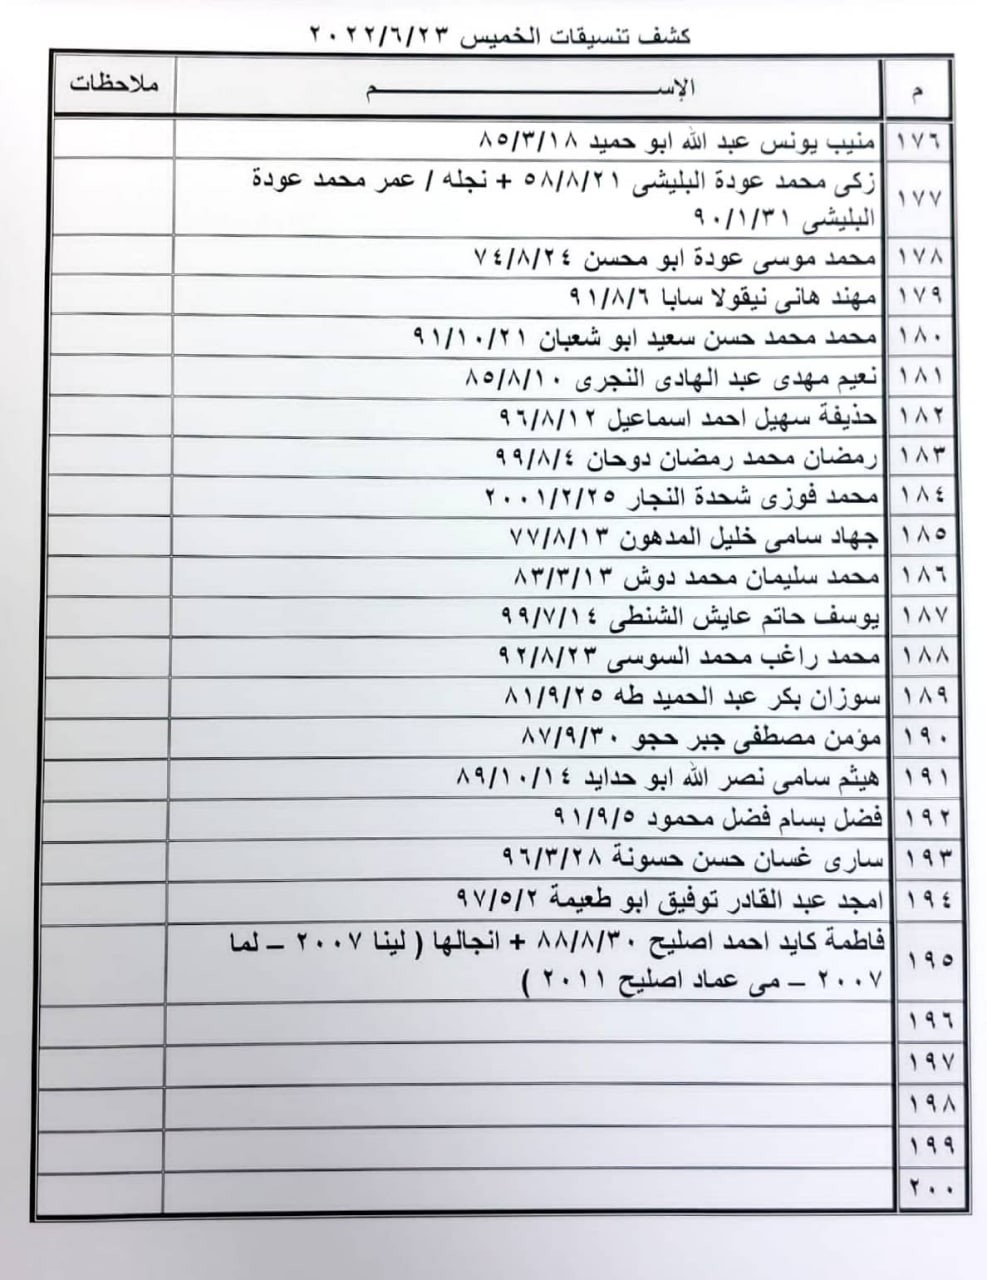 كشف تنسيقات الخميس ٢٠٢٢/٦/٢٣
م الإســـــــــــــم ملاحظات
١٧٦ منيب يونس عبد الله ابو حميد ٨٥/٣/١٨
١٧٧ زكى محمد عودة البليشى ٥٨/٨/٢١ + نجله / عمر محمد عودة
البليشى ٩٠/١/٣١
١٧٨ محمد موسى عودة ابو محسن ٧٤/٨/٢٤
١٧٩ مهند هانى نيقولا سابا ٩١/٨/٦
١٨٠ محمد محمد حسن سعيد ابو شعبان ٩١/١٠/٢١
١٨١ نعيم مهدى عبد الهادى النجرى ٨٥/٨/١٠
١٨٢ حذيفة سهيل احمد اسماعيل ٩٦/٨/١٢
١٨٣ رمضان محمد رمضان دوحان ٩٩/٨/٤
١٨٤ محمد فوزى شحدة النجار ٢٠٠١/٢/٢٥
١٨٥ جهاد سامى خليل المدهون ٧٧/٨/١٣
١٨٦ محمد سليمان محمد دوش ٨٣/٣/١٣
١٨٧ يوسف حاتم عايش الشنطى ٩٩/٧/١٤
١٨٨ محمد راغب محمد السوسى ٩٢/٨/٢٣
١٨٩ سوزان بكر عبد الحميد طه ٨١/٩/٢٥
١٩٠ مؤمن مصطفى جبر حجو ٨٧/٩/٣٠
١٩١ هيثم سامى نصر الله ابو حدايد ٨٩/١٠/١٤
١٩٢ فضل بسام فضل محمود ٩١/٩/٥
١٩٣ سارى غسان حسن حسونة ٩٦/٣/٢٨
١٩٤ امجد عبد القادر توفيق ابو طعيمة ٩٧/٥/٢
١٩٥ فاطمة كايد احمد اصليح ٨٨/٨/٣٠ + انجالها ( لينا ٢٠٠٧ – لما
٢٠٠٧ – مى عماد اصليح ٢٠١١ )
١٩٦
١٩٧
١٩٨
١٩٩
٢٠٠